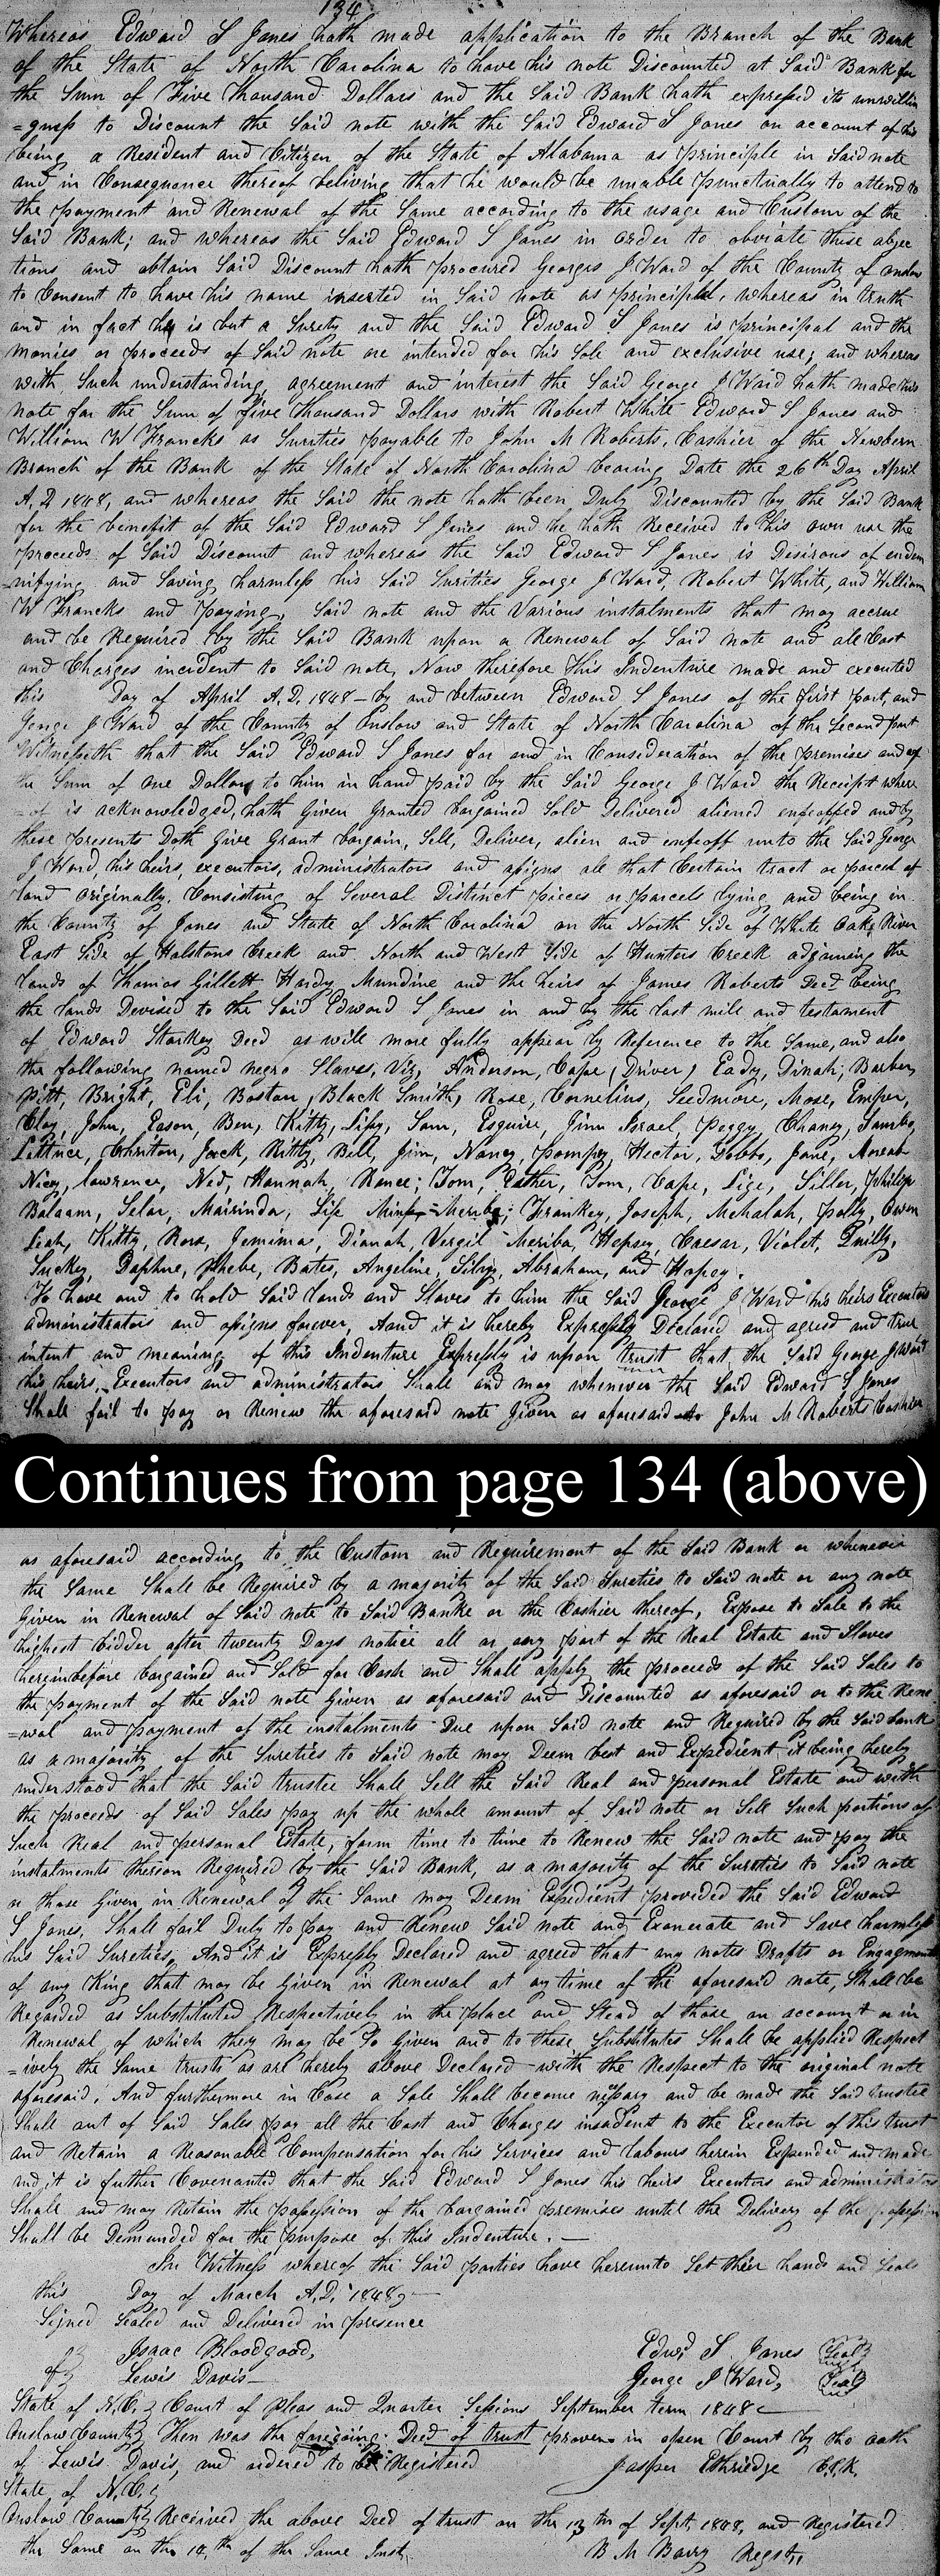 134
Whereas Edward S Jones hath made application to the Branch of the Bank
of the State of North Carolina to have his note Discounted at Said Bank for
the Sum of Five Thousand Dollars and the Said Bank hath expressed its unwillin
=gness to Discount the Said note with the Said Edward S Jones on account of his
being a Resident and Citizen of the State of Alabama as principle in Said note
and in Consequance thereof beliving that he would be unable punctually to attend to
the payment and Renewal of the Same according to the usage and Custom of the
Said Bank; and whereas the Said Edward S Jones in order to obviate these objec
tions and obtain Said Discount hath procured Georges J Ward of the County of Onslow
to Consent to have his name inserted in Said note as principal, whereas in truth
and in fact he is but a Surety and the Said Edward S Jones is principal and the
monies or proceeds of Said note are intended for his Sole and exclusive use; and whereas
with Such understanding, agreement and interest the Said George J Ward hath made this
note for the Sum of five Thousand Dollars with Robert White Edward S Jones and
William W Francks as Sureties payable to John M Roberts, Cashier of the Newbern
Branch of the Bank of the State of North Carolina bearing Date the 26th Day April
A, D 1848, and whereas the Said the note hath been Duly Discounted by the Said Bank
for the benefit of the Said Edward S Jones and he hath Received to his own use the
proceeds of Said Discount and whereas the Said Edward S Jones is Desirous of endem
nifying and Saving harmless his Said Surities George J Ward, Robert White, and William
W Francks and paying Said note and the Various instalments that may accrue
and be Required by the Said Bank upon a Renewal of Said note and all Cost
and Charges incident to Said note, Now therefore This Indenture made and executed
this Day of April A, D, 1848 - by and between Edward S Jones of the first part, and
George J Ward of the County of Onslow and State of North Carolina of the Second part
Witnesseth that the Said Edward S Jones for and in Consideration of the premises and of
the Sum of one Dollar to him in hand paid by the Said George J Ward the Receipt where
=of is acknowledged, hath Given Granted bargained Sold Delivered aliened enfeoffed and by
these presents Doth Give Grant bargain, Sell, Deliver, alien and enfeoff unto the Said George
J Ward, his heirs, executors, administrators and assigns all that Certain tract or parcel of
land originally Consisting of Several Distinct pieces or parcels lying and being in
the County of Jones and State of North Carolina on the North Side of White Oake River
East Side of Halstons Creek and North and West Side of Hunters Creek adjoining the
lands of Thomas Gillett Hardy Mundine and the heirs of James Roberts Decd being
the lands Devised to the Said Edward S Jones in and by the last will and testament
of Edward Starkey Decd as will more fully appear by Reference to the Same, and also
the following named negro Slaves, Viz, Anderson, Cape (Driver) Eady, Dinah, Barber,
Pitt, Bright, Eli, Boston, Black Smith, Rose, Cornelius, Seedmore, Mose, Emper,
Clay, John, Eason, Ben, Kitty, Sam, Esquire, Jinn Israel, Peggy, Chaney,
Lettuce, Jack, Kitty, Bill, Jim, Nancy, Pompey, Hector, Dobbs, Jane,
Nicey, Lawrence, Ned, Hannah, Renee; Tom, Esther, Tom, Cape, Lige, Siller, Philip
Balaam, Selar, Mairinda, Frankey, Joseph, Mehalah, Polly, Owen
Leah, Kitty, Rose, Jemima, Dianah, Vergil Meriba, Hepsey, Caesar, Violet,
Suckey, Daphne, Phebe, Bates, Angeline, Abraham, and Hapey.
To have and to hold Said lands and Slaves to him the Said George J Ward his heirs Executors
administrators and assigns forever, And it is hereby Expressly Declared and agreed and true
intent and meaning of this Indenture Expressly is upon trust that the Said George J Ward
his heirs, Executors and administrators Shall and may whenever the Said Edward S Jones
Shall fail to pay or Renew the aforesaid note Given as aforesaid to John M Roberts Cashier
Continues from page 134 (above)
as aforesaid according to the Custom and Requirement of the Said Bank or whenever
the Same Shall be Required by a majority of the Said Sureties to Said note or any note
Given in Renewal of Said note to Said Banke or the Cashier thereof, Expose to Sale to the
highest bidder after twenty Days notice all or any part of the Real Estate and Slaves
hereinbefore bargained and Sold for Cash and Shall apply the proceeds of the Said Sales to
the payment of the Said note Given as aforesaid and Discounted as aforesaid or to the Rene
=wal and payment of the instalments Due upon Said note and Required by the Said bank
as a majority of the Sureties to Said note may Deem best and Expedient it being hereby
understood that the Said trustee Shall Sell the Said Real and personal Estate and with
the proceeds of Said Sales pay up the whole amount of Said note or Sell Such portions of
Such Real and personal Estate, form time to time to Renew the Said note and pay the
instalments thereon Required by the Said Bank, as a majority of the Sureties to Said note
or those Given in Renewal of the Same may Deem Expedient provided the Said Edward
S Jones, Shall fail Duly to pay and Renew Said note and Exonerate and Save harmless
his Said Sureties, And it is Expressly Declared and agreed that any notes Drafts or Engagments
of any King that may be Given in Renewal at any time of the aforesaid note, Shall be
Regarded as Substituted Respectively in the place and Stead of those on account or in
Renewal of which they may be So Given and to these Substitutes Shall be applied Respect
=ively the Same trusts as are hereby above Declared with the Respect to the original note
aforesaid; And furthermore in Case a Sale Shall become nessary and be made the Said trustee
Shall out of Said Sales pay all the Cost and Charges insadent to the Executor of this trust
and Retain a Reasonable Compensation for his Services and labours herein Expended and made
and it is further Covenanted that the Said Edward S Jones his heirs Executors and administrators
Shall and may Retain the possession of the bargained premises until the Delivery of the possession
Shall be Demanded for the purpose of this Indenture. —
In Witness whereof the Said parties have hereunto Set their hands and Seals
this Day of March A.D. 1848 —
Signed Sealed and Delivered in presence
of Isaac Bloodgood, Edwd S Jones Seal
of Lewis Davis — George J Ward, Seal
State of N.C. Court of Pleas and Quarter Sessions September term 1848
Onslow County Then was the foregoing Deed of trust proven in open Court by the oath
of Lewis Davis, and ordered to be Registered Jasper Ethridge Clk
State of N.C.
Onslow County Received the above Deed of trust on the 13th of Sept, 1848, and Registered
the Same on the 14th of the Same Inst, B M Barry Regstr